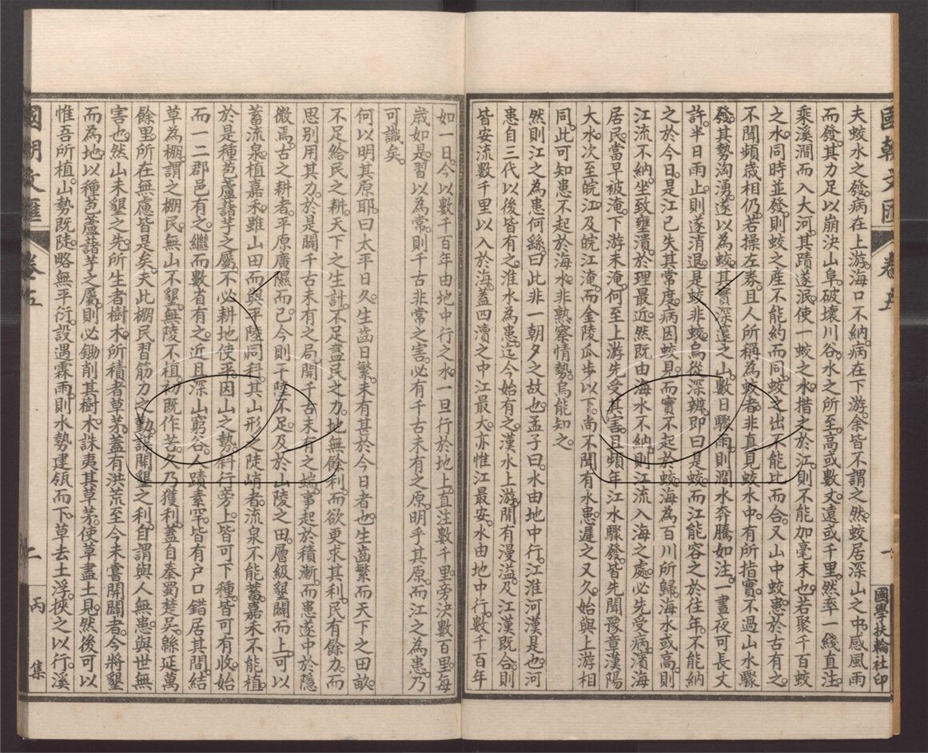 國朝文匯 卷五
國學扶輪社印
夫蛟水之發病在上游海口不納病在下游余皆不謂之然蛟居深山之中感風雨
而發其力足以崩決山阜破壞川谷水之所至高或數丈遠或千里然率一綫直注
乘溪澗而入大河其蹟遂泯使一蛟之水措之於江則不能加毫末也若聚千百蛟
之水同時並發則蛟之產不能約而同蛟之出不能比而合又山中蛟患於古有之
不聞頻歲相仍若操左券且人所稱為蛟者非真見蛟水中有所指實不過山水驟
發其勢洶湧遂以為蛟其實深遠之山數日驟雨則澗水奔騰如注一晝夜可長丈
許半日雨止則遂消退是蛟非蛟烏從深辨即曰是蛟而江能容之於往年不能納
之於今日是江已失其常度病因蛟見而實不起於蛟海為百川所歸海水或高則
江流不納坐致壅潰於理最近然既由海水不納則江流入海之處必先受病濱海
居民當早被淹下游未淹何至上游先受其害且頻年江水驟發皆先聞豫章漢陽
大水次至皖江及皖江淹而金陵瓜步以下尚不聞有水患遲之又久始與上游相
同此可知患不起於海水非熟察情勢烏能知之
然則江之為患何繇曰此非一朝夕之故也孟子曰水由地中行江淮河漢是也河
患自三代以後皆有之淮水為患迄今始有之漢水上游間有漫溢及江漢既合則
皆安流數千里以入於海蓋四瀆之中江最大亦惟江最安水由地中行數千百年
如一日今以數千百年由地中行之水一旦行於地上直注數千里旁決數百里每
歲如是習以為常則千古非常之害必有千古未有之原明乎其原而江之為患乃
可識矣
何以明其原耶曰太平日久生齒日繁未有甚於今日者也生齒繁而天下之田畝
不足給民之耕天下之生計不足盡民之力地無餘利而欲更求其利民有餘力而
思別用其力於是闢千古未有之局開千古未有之地事起於積漸而患遂中於隱
微焉古之耕者平原廣隰而已今則平陸不足及於山陵之田層級墾闢而上可以
蓄流泉植嘉禾雖山田而與平陸同科其山形之陡峭者流泉不能蓄嘉禾不能植
於是種苞蘆藷芋之屬不必耕地使平因山之勢斜行旁上皆可下種皆可有收始
而一二郡邑有之繼而數省有之近且深山窮谷人蹟素罕皆有戶口錯居其間結
草為棚謂之棚民無山不墾無陵不植初既作苦久乃獲利蓋自秦蜀楚吳緜延萬
餘里所在無慮皆是矣夫此棚民習筋力之勤謀開墾之利自謂與人無患與世無
害也然山未墾之先所生者樹木所積者草茅蓋有洪荒至今未嘗開闢者今將墾
而為地以種苞蘆藷芋之屬則必鋤削其樹木誅夷其草茅使草盡土見然後可以
惟吾所植山勢既陡略無平衍設遇霖雨則水勢建瓴而下草去土浮挾之以行溪
國朝文匯 卷五 二 丙集